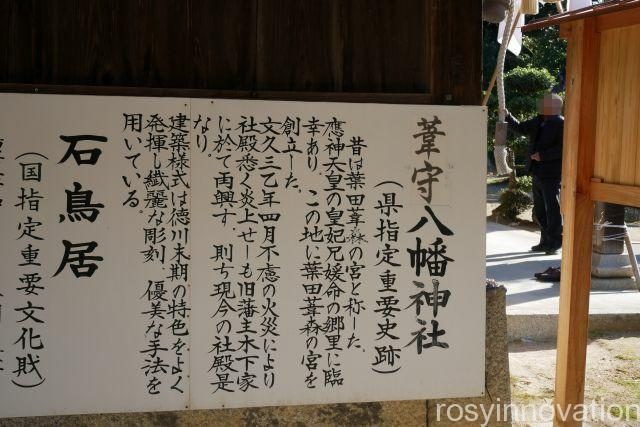 葦守八幡神社
(県指定重要史跡)
昔は葉田葦森の宮と称した。
應神天皇の皇妃兄媛命の郷里に臨
幸あり、この地に葉田葦森の宮を
創立した。
文久三乙年四月不應の火災により
社殿悉く炎上せしも旧藩主木下家
に於て再興す、則ち現今の社殿是
なり。
建築様式は徳川末期の特色をよく
発揮し繊麗な彫刻、優美な手法を
用いている。
石鳥居
(国指定重要文化財)
rosyinnovation